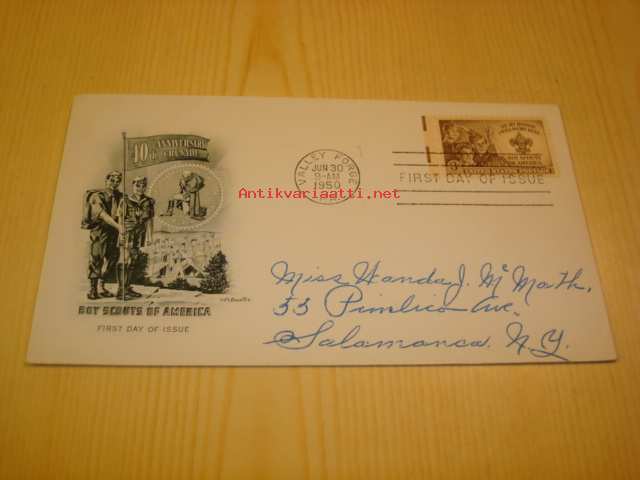 40th ANNIVERSARY
CRUSADE
BOY SCOUTS OF AMERICA
FIRST DAY OF ISSUE
VALLEY FORGE
JUN 30
9-AM
1950
PA.
BOY SCOUTS
OF AMERICA
UNITED STATES POSTAGE
FIRST DAY OF ISSUE
Antikvariaatti.net
Miss Wanda J. McMath,
53 Pimlico Ave.
Salamanca N.Y.